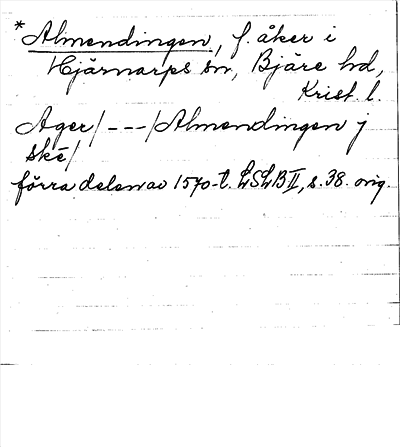 *Almendingen, f. åker i
Hjärnarps sn, Bjäre hd,
Krist. l.
Ager/---/Almendingen j
skē/
förra delen av 1570-t. LSLB II, s. 38. orig.